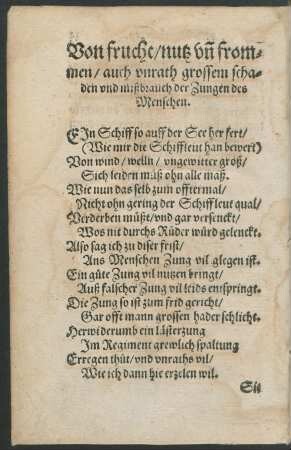 Von frucht/ nutz vñ from⸗
men/ auch vnrath grossem scha⸗
den vnd mißbrauch der Zungen des
Menschen.
EIn Schiff so auff der See her fert/
(Wie mir die Schiffleut han bewert)
Von wind/ welln/ vngewitter groß/
Sich leiden můß ohn alle maß.
Wie nun das selb zum offtermal/
Nicht ohn gering der Schiffleut qual/
Verderben můßt/ vnd gar versenckt/
Wos nit durchs Růder würd gelenckt.
Also sag ich zu diser frist/
Ans Menschen Zung vil glegen ist.
Ein gůte Zung vil nutzen bringt/
Auß falscher Zung vil leids entspringt.
Die Zung so ist zum frid gericht/
Gar offt mann grossen hader schlicht.
Herwiderumb ein Lästerzung
Im Regiment grewlich spaltung
Erregen thůt/ vnd vnraths vil/
Wie ich dann hie erzelen wil.
Sit